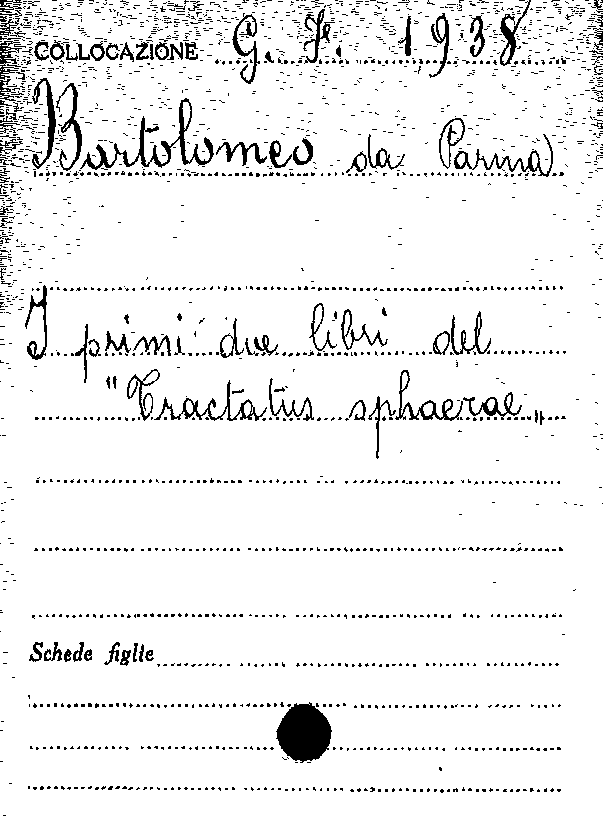 COLLOCAZIONE G. F. 1938
Bartolomeo da Parma
I primi due libri del
"Tractatus sphaerae„
Schede figlie